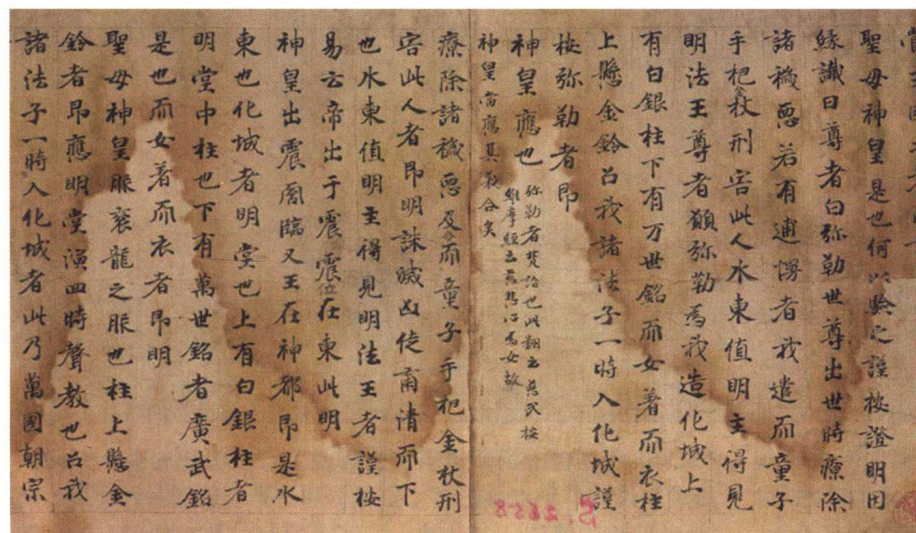 聖母神皇是也何以驗之謹桉證明因
緣讖曰尊者白弥勒世尊出世時療除
諸穢惡若有逋慢者我遣而童子
手杷金杖刑害此人水東值明主得見
明法王尊者願弥勒為我造化城上
有白銀柱下有万世銘而女著而衣柱
上懸金鈴召我諸法子一時入化城謹
桉弥勒者即
神皇應也
弥勒者梵語也此翻云慈氏桉
維摩經云慈悲心為女故
神皇當應其義合矣
療除諸穢惡及而童子手杷金杖刑
害此人者即明誅滅凶徒肅清而下
也水東值明主得見明法王者謹桉
易云帝出于震震位在東此明
神皇出震𠺞臨又王在神都即是水
東也化城者明堂也上有白銀柱者
明堂中柱也下有萬世銘者廣武銘
是也而女著而衣者即明
聖母神皇服衮龍之服也柱上懸金
鈴者即應明堂演四時聲教也召我
諸法子一時入化城者此乃萬國朝宗
S. 2658